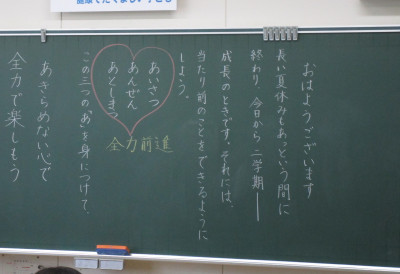 おはようございます
長い夏休みもあっという間に
終わり、今日から二学期―
成長のときです。それには、
当たり前のことをできるように
しよう。
あいさつ
あんぜん
あとしまつ
全力前進
この三つの“あ”を身につけて、
あきらめない心で
全力で楽しもう